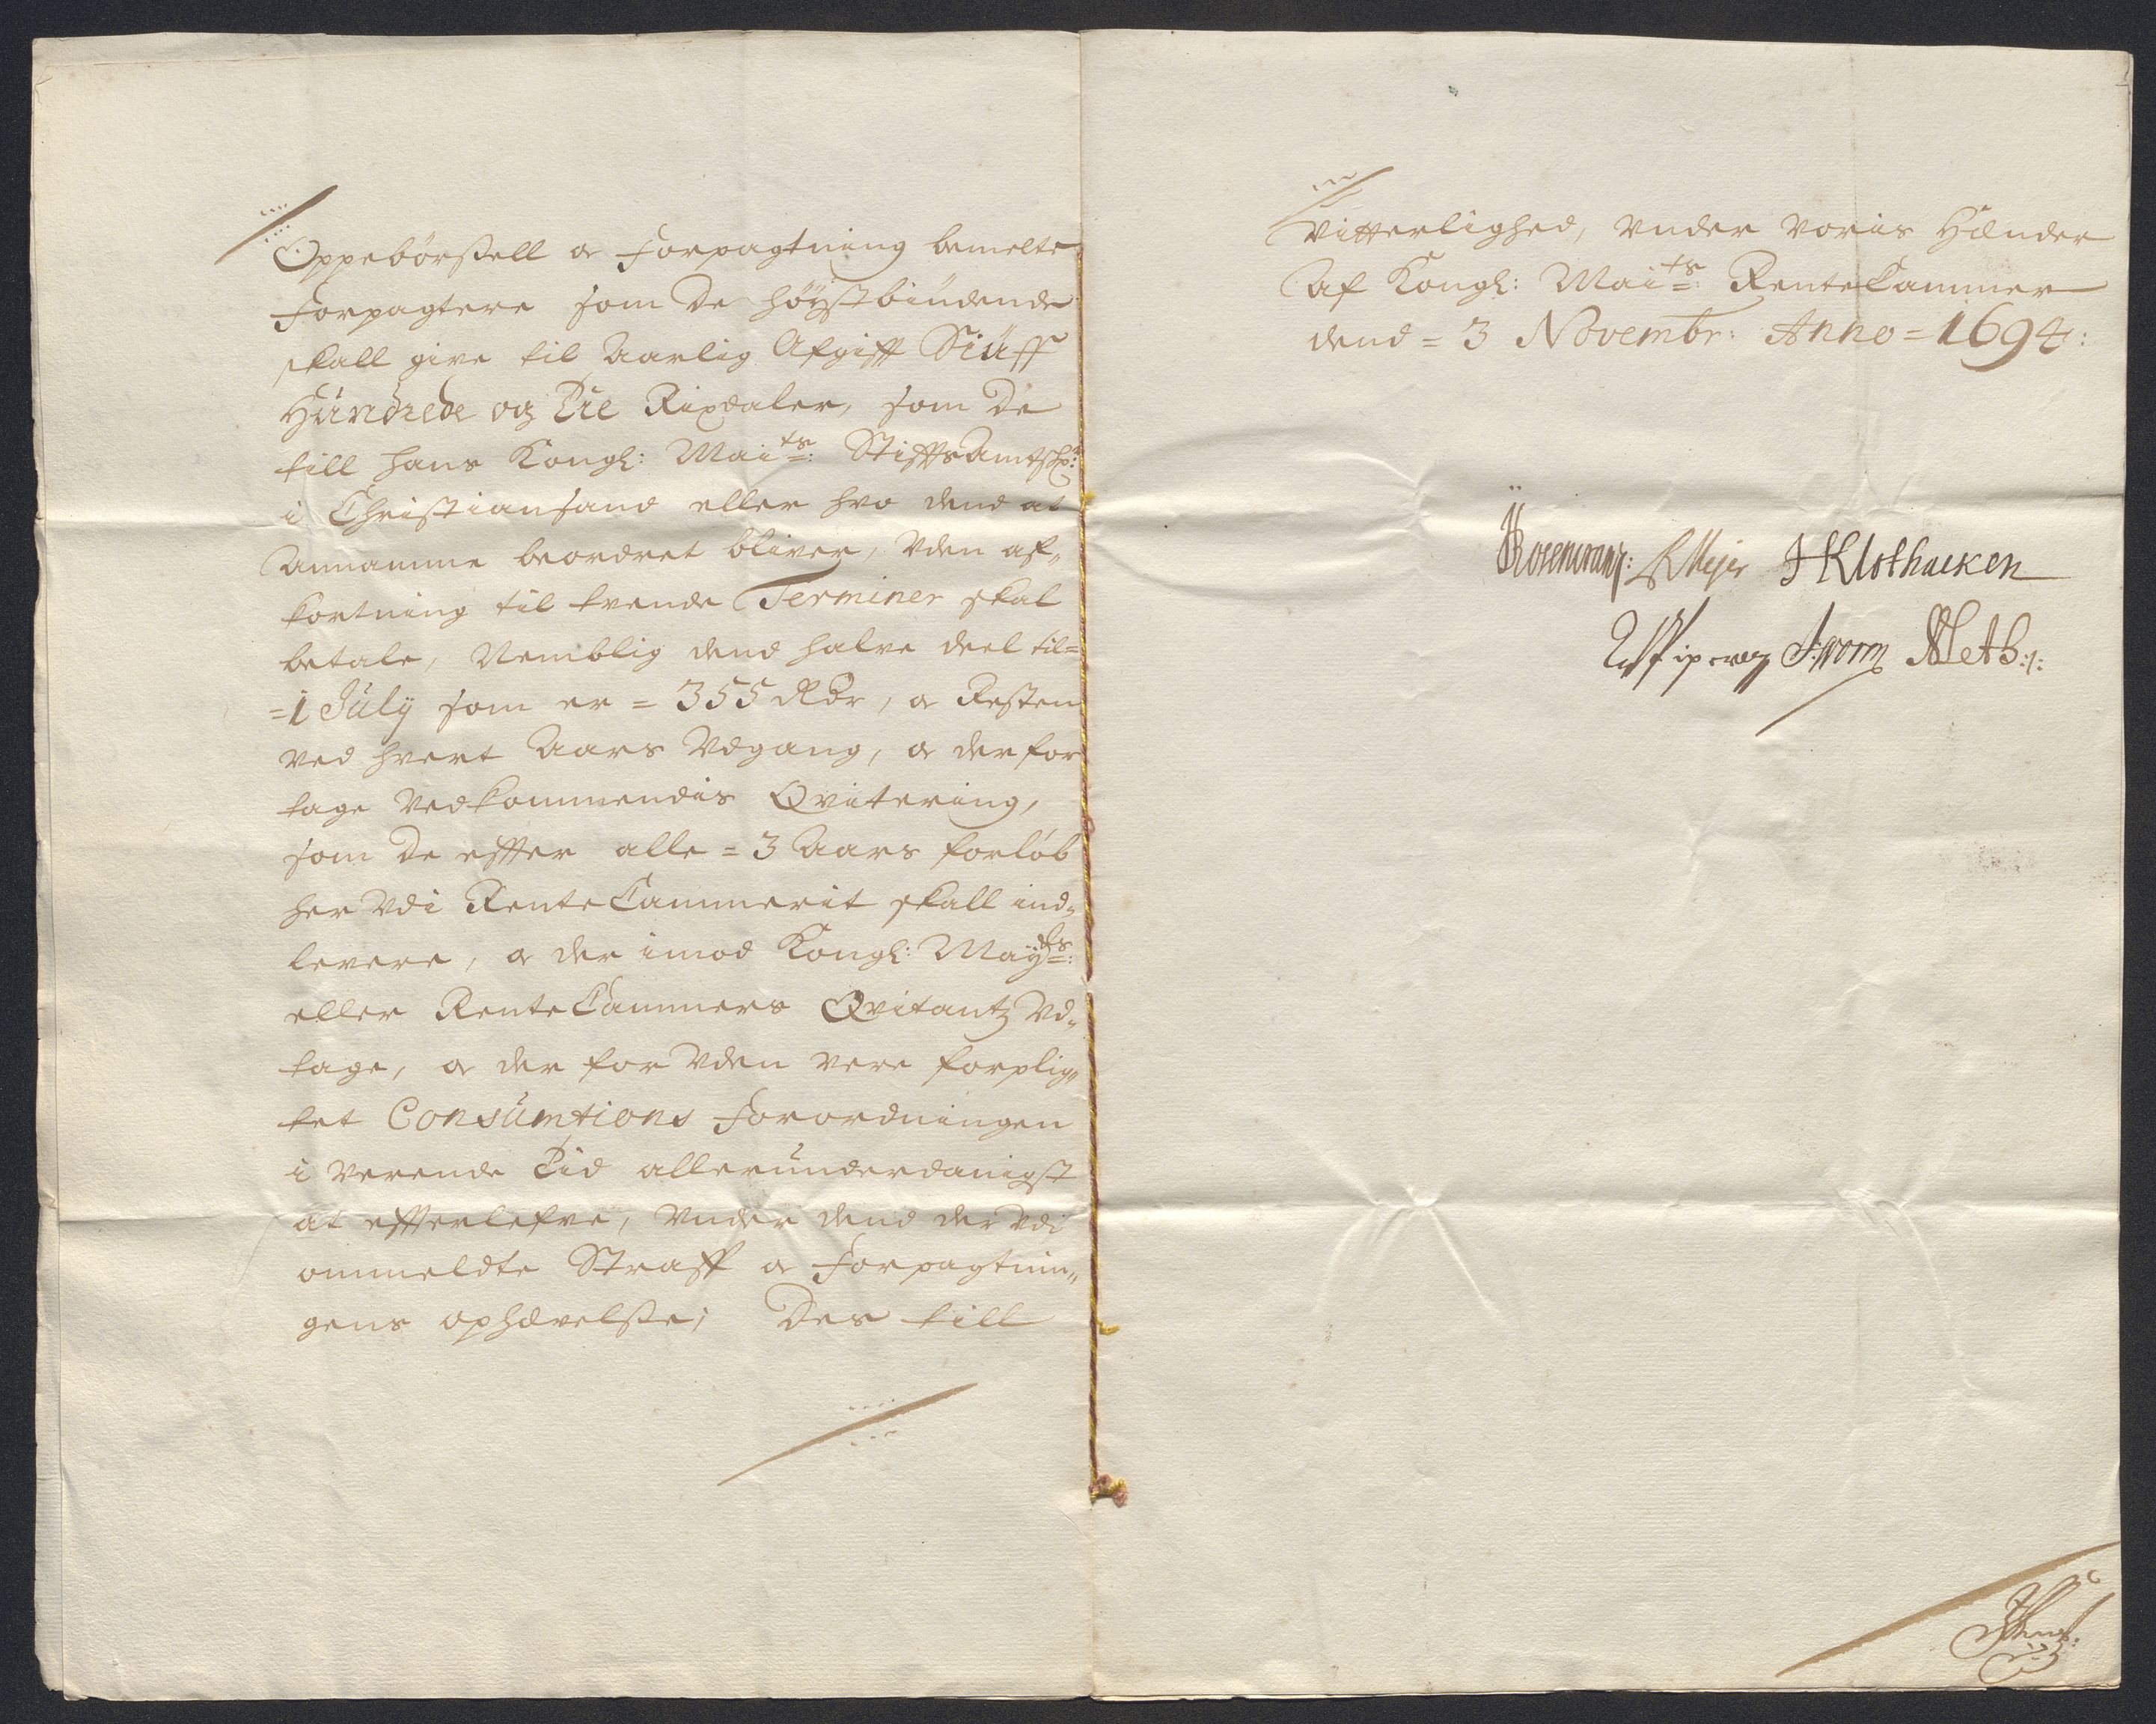 Oppebörßell & Forpagtning bemelte
Forpagtere som De höÿstbiudende
skall give til Aarlig Afgifft Siuff
Hundrede og Tie Rixdaler, som De
till hans Kongl: Maits: StifftsAmbtsh:
i Christiansand eller hvo dend at
Annamme beordret bliver, Uden af„
kortning til tvende Terminer skal
betale, Nemblig dend halve deel til=
=1 Julÿ som er = 355 Rdr, & Resten
ved hvert Aars Udgang, & derfor
tage Vedkommendis Qvitering,
som De effter alle = 3 Aars forlöb
her Udi RenteCammerit skall ind„
levere, & der imod Kongl: Maÿts:
eller RenteCammers Qvitantz Ud„
tage, & der for Uden vere forplig„
tet Consumtions Forordningen
i verende Tid allerunderdanigst
at effterlefve, Under dend der Udi
ommeldte Straff & Forpagtnin„
gens ophævelße; Des till
Vitterlighed, Under voris Hænder
Af Kongl: Maits: RenteCammer
dend = 3 Novembr: Anno = 1694:
Rosencrantz: Meÿer HKlothacken
Worm Meth: